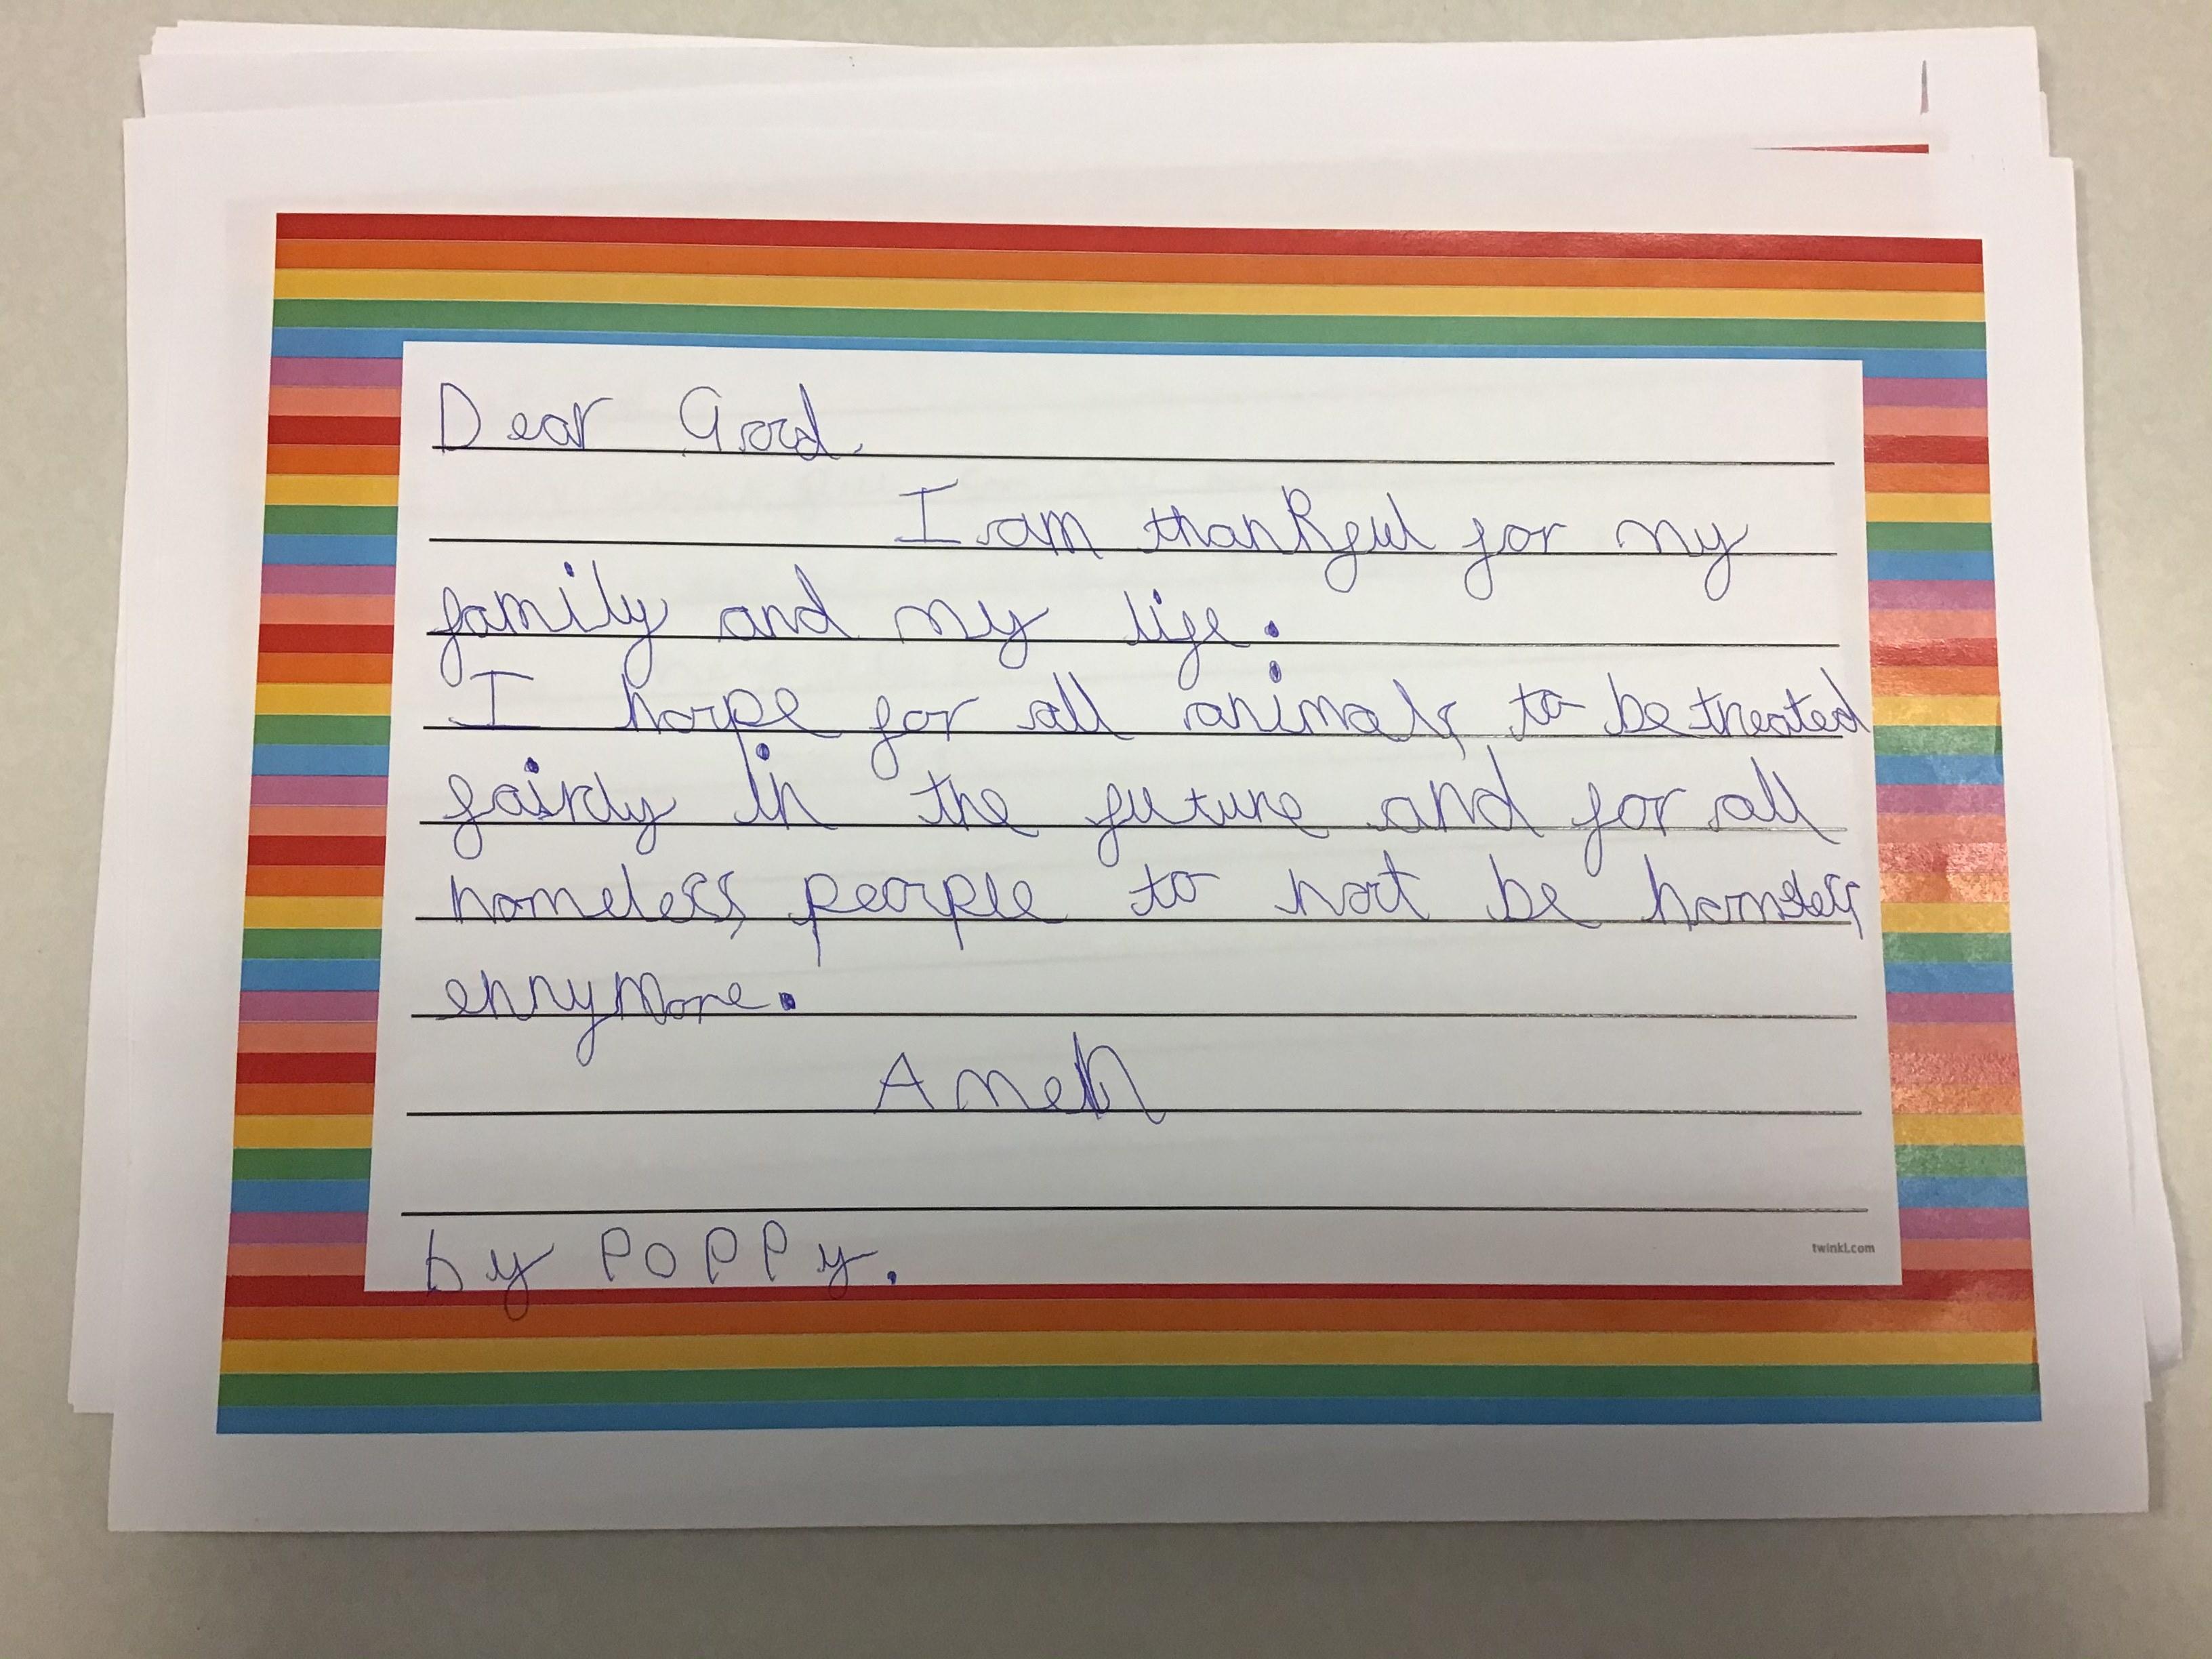 Dear God,
I am thankful for my
family and my life.
I hope for all animals to be treated
fairly in the future and for all
homeless people to not be homeless
ennymore.
Amen
twinkl.com
by POPPy.